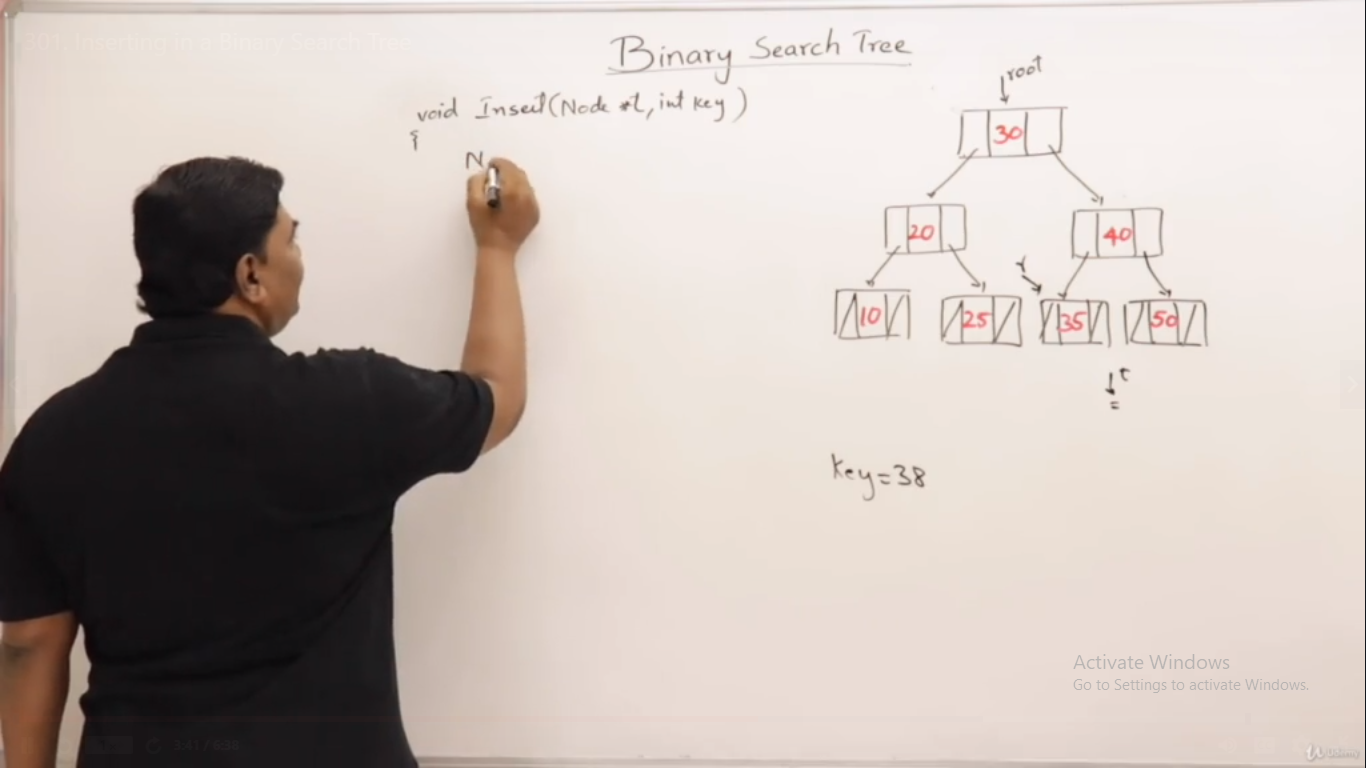 301. Inserting in a Binary Search Tree
Binary Search Tree
void Insert(Node *t, int key)
{
N
root
30
20
40
r
10
25
35
50
t
=
Key=38
Activate Windows
Go to Settings to activate Windows.
3:41 / 6:38
Udemy